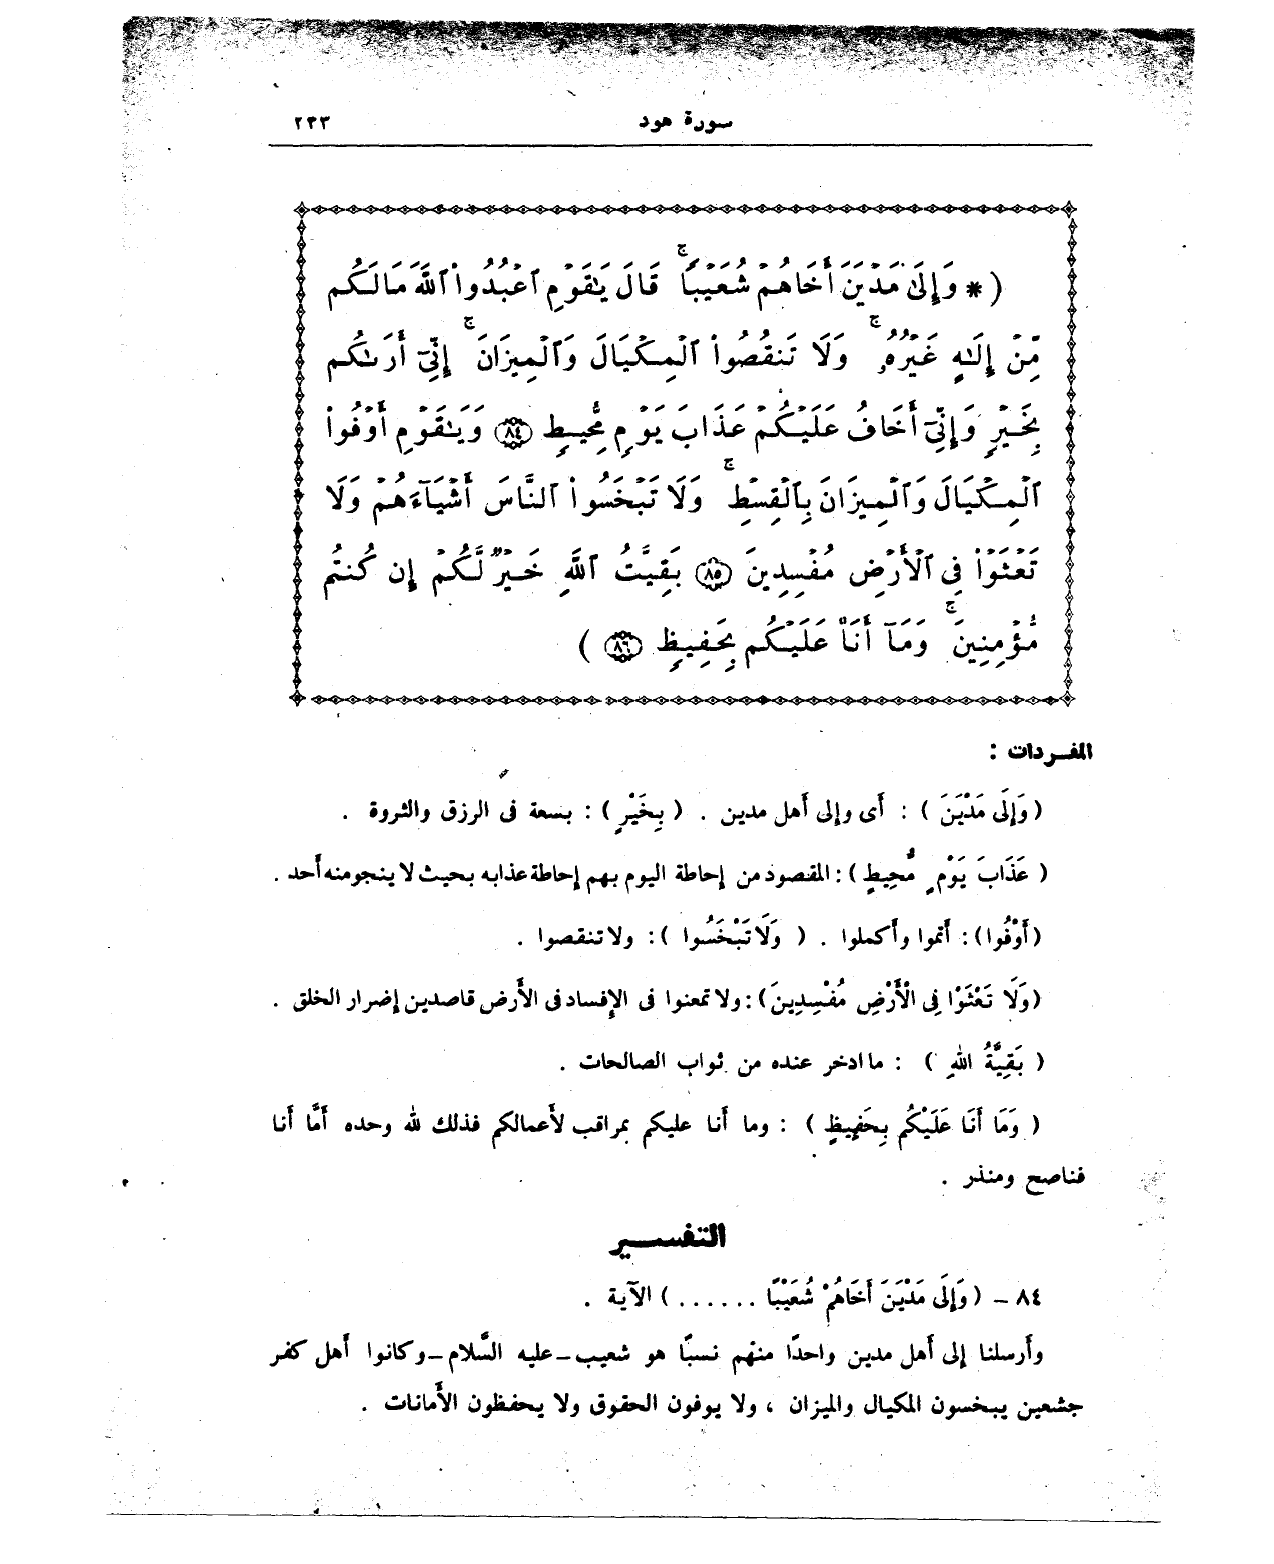 سورة هود ٢٣٣
( * وَإِلَىٰ مَدۡيَنَ أَخَاهُمۡ شُعَيۡبٗاۚ قَالَ يَٰقَوۡمِ ٱعۡبُدُواْ ٱللَّهَ مَا لَكُم
مِّنۡ إِلَٰهٍ غَيۡرُهُۥۚ وَلَا تَنقُصُواْ ٱلۡمِكۡيَالَ وَٱلۡمِيزَانَۚ إِنِّيٓ أَرَىٰكُم
بِخَيۡرٖ وَإِنِّيٓ أَخَافُ عَلَيۡكُمۡ عَذَابَ يَوۡمٖ مُّحِيطٖ ٨٤ وَيَٰقَوۡمِ أَوۡفُواْ
ٱلۡمِكۡيَالَ وَٱلۡمِيزَانَ بِٱلۡقِسۡطِۚ وَلَا تَبۡخَسُواْ ٱلنَّاسَ أَشۡيَآءَهُمۡ وَلَا
تَعۡثَوۡاْ فِي ٱلۡأَرۡضِ مُفۡسِدِينَ ٨٥ بَقِيَّتُ ٱللَّهِ خَيۡرٞ لَّكُمۡ إِن كُنتُم
مُّؤۡمِنِينَۚ وَمَآ أَنَا۠ عَلَيۡكُم بِحَفِيظٖ ٨٦ )
المفـردات :
( وَإِلَى مَدْيَنَ ) : أَى وإلى أَهل مدين . ( بِخَيْرٍ ) : بسعة فى الرزق والثروة .
( عَذَابَ يَوْمٍ مُّحِيطٍ ) : المقصود من إحاطة اليوم بهم إحاطة عذابه بحيث لا ينجو منه أَحد .
( أَوْفُوا ) : أَتموا وأَكملوا . ( وَلَا تَبْخَسُوا ) : ولا تنقصوا .
( وَلَا تَعْثَوْا فِى الْأَرْضِ مُفْسِدِينَ ) : ولا تمعنوا فى الإِفساد فى الأَرض قاصدين إضرار الخلق .
( بَقِيَّةُ اللهِ ) : ما ادخر عنده من ثواب الصالحات .
( وَمَا أَنَا عَلَيْكُم بِحَفِيظٍ ) : وما أَنا عليكم بمراقب لأَعمالكم فذلك لله وحده أَمَّا أَنا
فناصح ومنذر .
التفسـير
٨٤ – ( وَإِلَى مَدْيَنَ أَخَاهُمْ شُعَيْبًا . . . . . . ) الآية .
وأَرسلنا إلى أَهل مدين واحدًا منهم نسبًا هو شعيب – عليه السَّلام – وكانوا أَهل كفر
جشعين يبخسون المكيال والميزان ، ولا يوفون الحقوق ولا يحفظون الأَمانات .